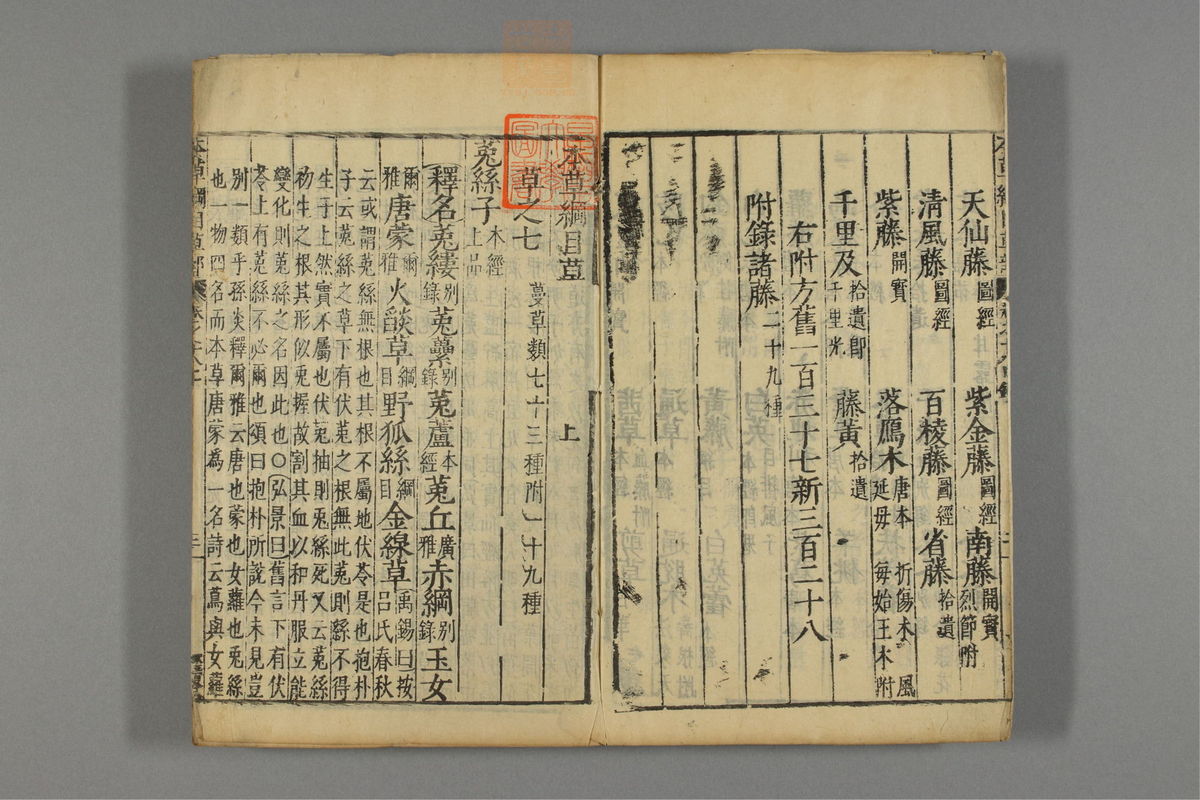 天仙藤圖經 紫金藤圖經 南藤開寳烈節附
清風藤圖經 百稜藤圖經 省藤拾遺
紫藤開寳 落鴈木唐本 折傷木 風延母 每始王木附
千里及拾遺即千里光 藤黃拾遺
右附方舊一百三十七新三百二十八
附錄諸藤二十九種
本草綱目草
草之七 蔓草類七十三種附一十九種 上
菟絲子本經上品
釋名菟縷别錄菟虆别錄菟蘆本經菟丘廣雅赤綱别錄玉女
爾雅唐蒙爾雅火燄草綱目野狐絲綱目金線草禹錫曰按呂氏春秋
云或謂菟絲無根也其根不屬地伏苓是也抱朴
子云菟絲之草下有伏菟之根無此菟則絲不得
生于上然實不屬也伏菟抽則菟絲死又云菟絲
初生之根其形似兎握故割其血以和丹服立能
變化則菟絲之名因此也○弘景曰舊言下有伏
苓上有菟絲不必爾也頌曰抱朴所說今未見豈
别一類乎孫炎釋爾雅云唐也蒙也女蘿也兎絲
也一物四名而本草唐蒙為一名詩云蔦與女蘿